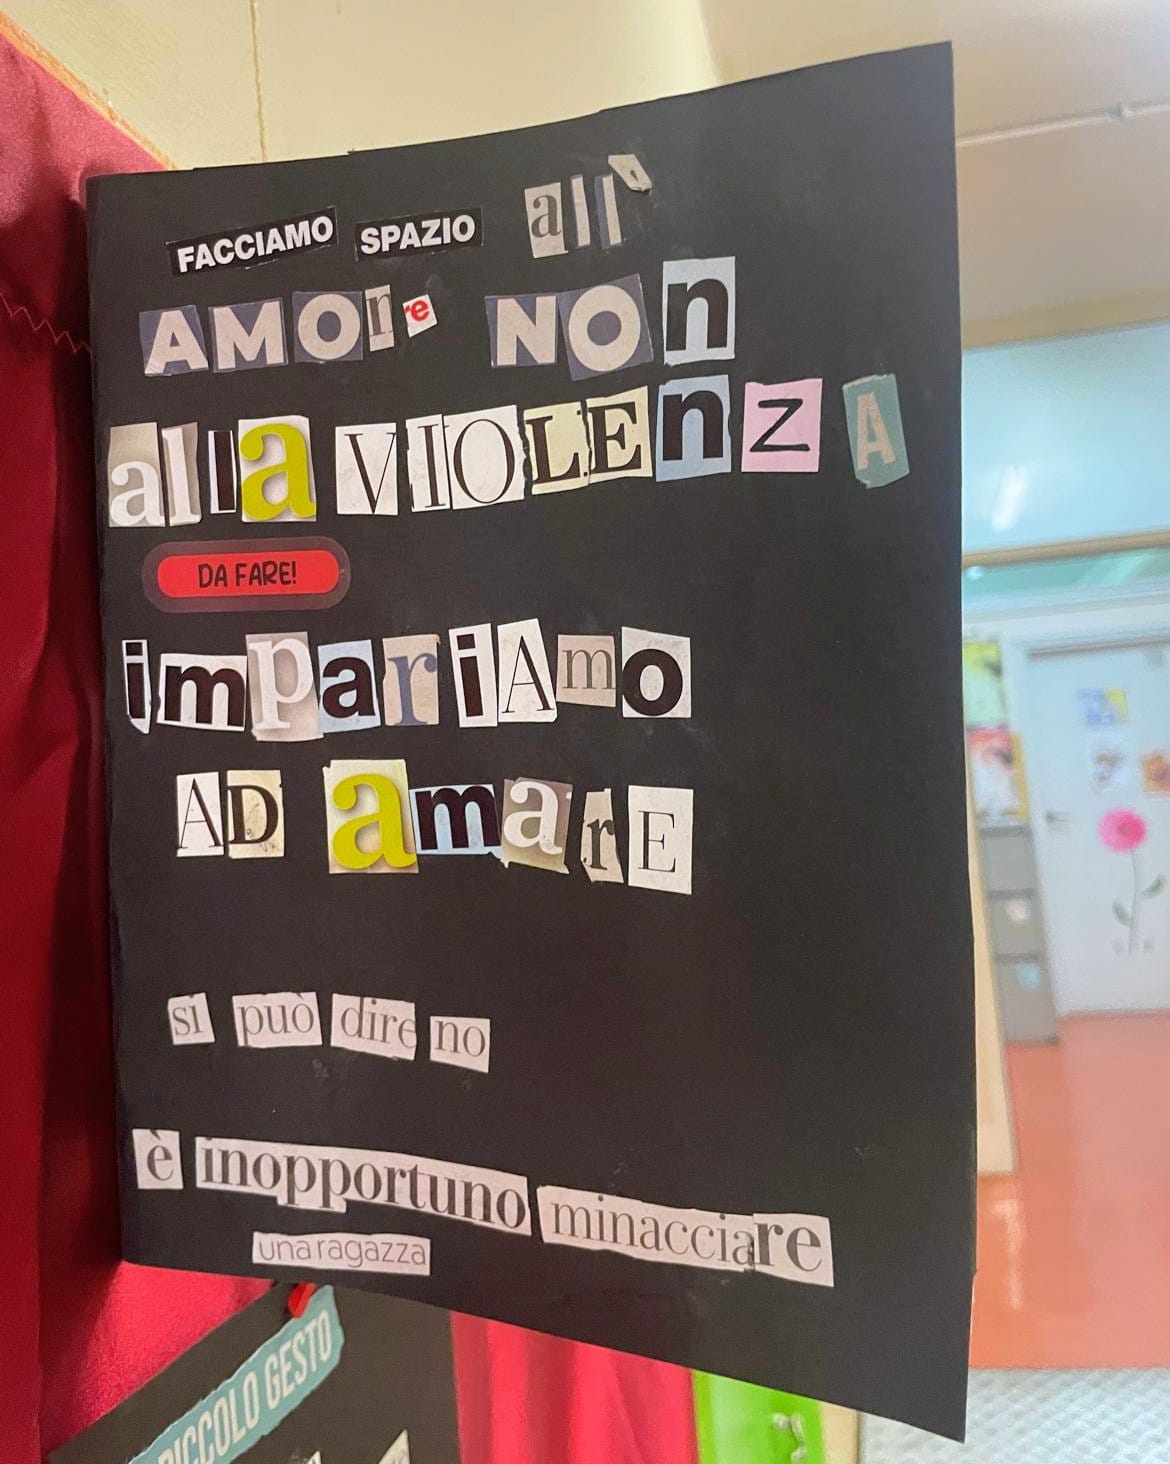 FACCIAMO SPAZIO all'
AMORe NON
alla VIOLEnZA
DA FARE!
impariAmo
AD amarE
si può dire no
è inopportuno minacciare
una ragazza
PICCOLO GESTO